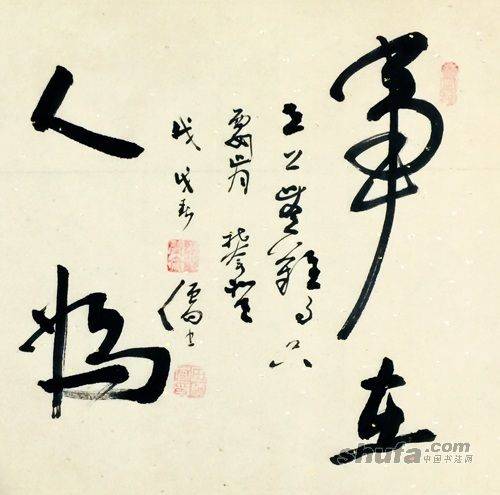 事在
世上無難事只
要肯攀登
戊戌春
人為
shufa.com
中国书法网